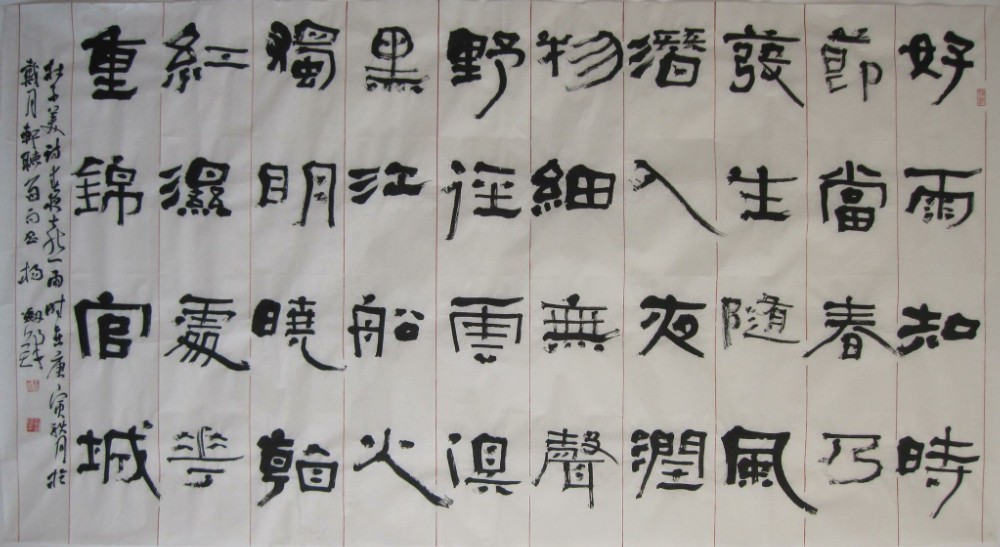 好雨知時
節當春乃
發生隨風
潛入夜潤
物細無聲
野徑雲俱
黑江船火
獨明曉看
紅濕處花
重錦官城
杜子美诗春夜喜雨時在庚寅秋月於
戴月軒